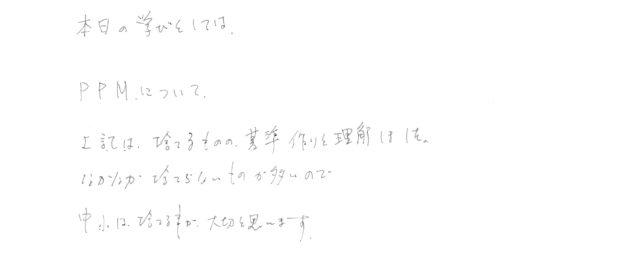 本日の学びとしては、
PPMについて、
上記は、捨てるものの、基準作りと理解しました。
なかなか捨てられないものが多いので
中小は、捨てる事が、大切と思います。